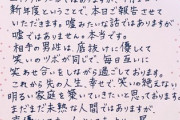 新年度ということで、本日ご報告させて
いただきます。嘘みたいな話ではありますが
嘘ではありません。本当です。
相手の男性は、底抜けに優しくて
笑いのツボが同じで、毎日互いに
笑わせ合いをしながら過ごしております。
これから先の人生、幸せで、笑いの絶えない
明るい家庭を築いていけたらと思います。
まだまだ未熟な人間ではありますが、